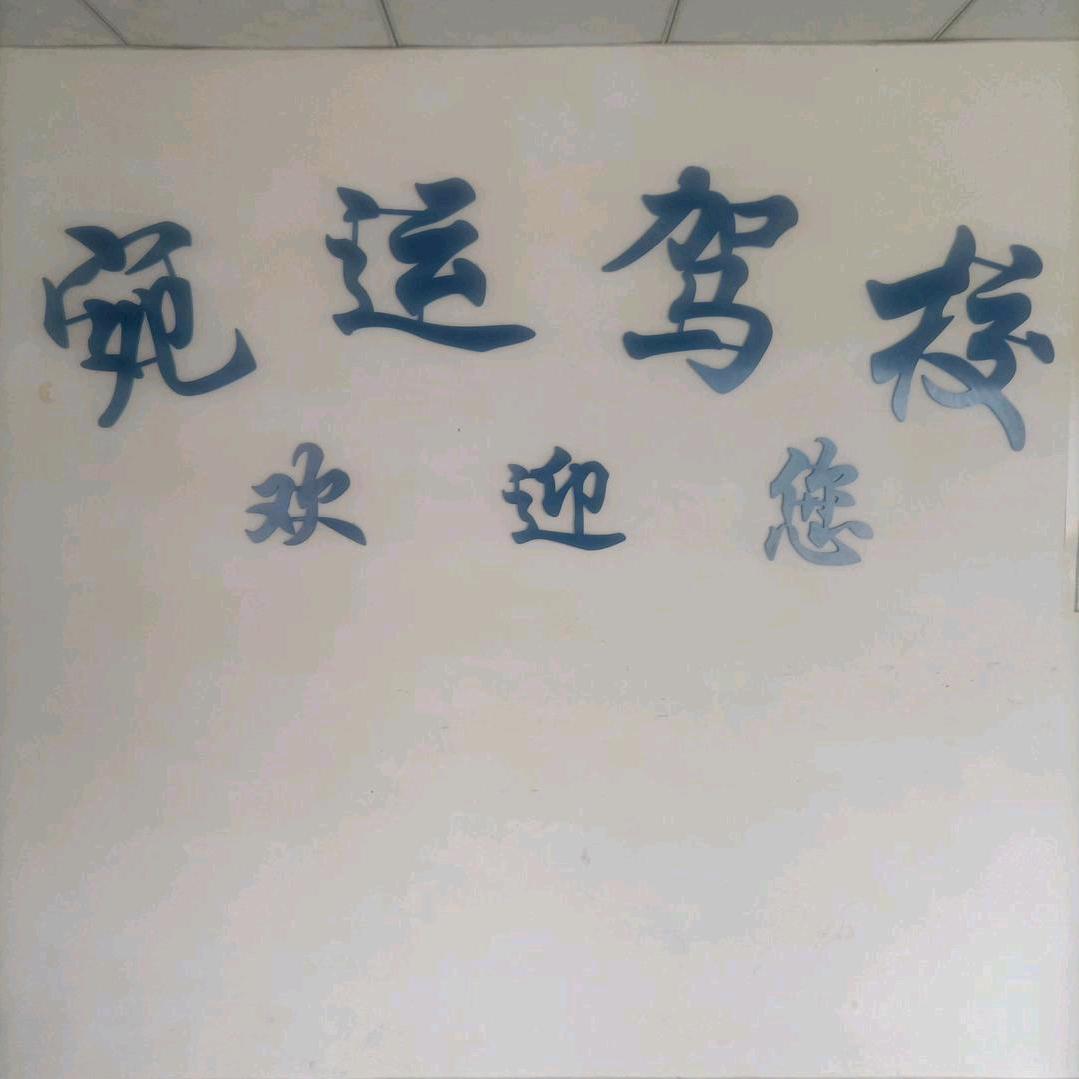 宛运驾校
欢迎您